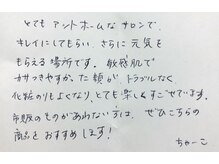 とても アットホームな サロンで、
キレイにしてもらい、さらに 元気を
もらえる 場所です。 敏感肌で
カサつきやすかった 頬が、トラブルなく
化粧のりもよくなり、とても楽しくすごせています。
市販のものがあわない方は、ぜひこちらの
商品をおすすめします!
ちゃーこ